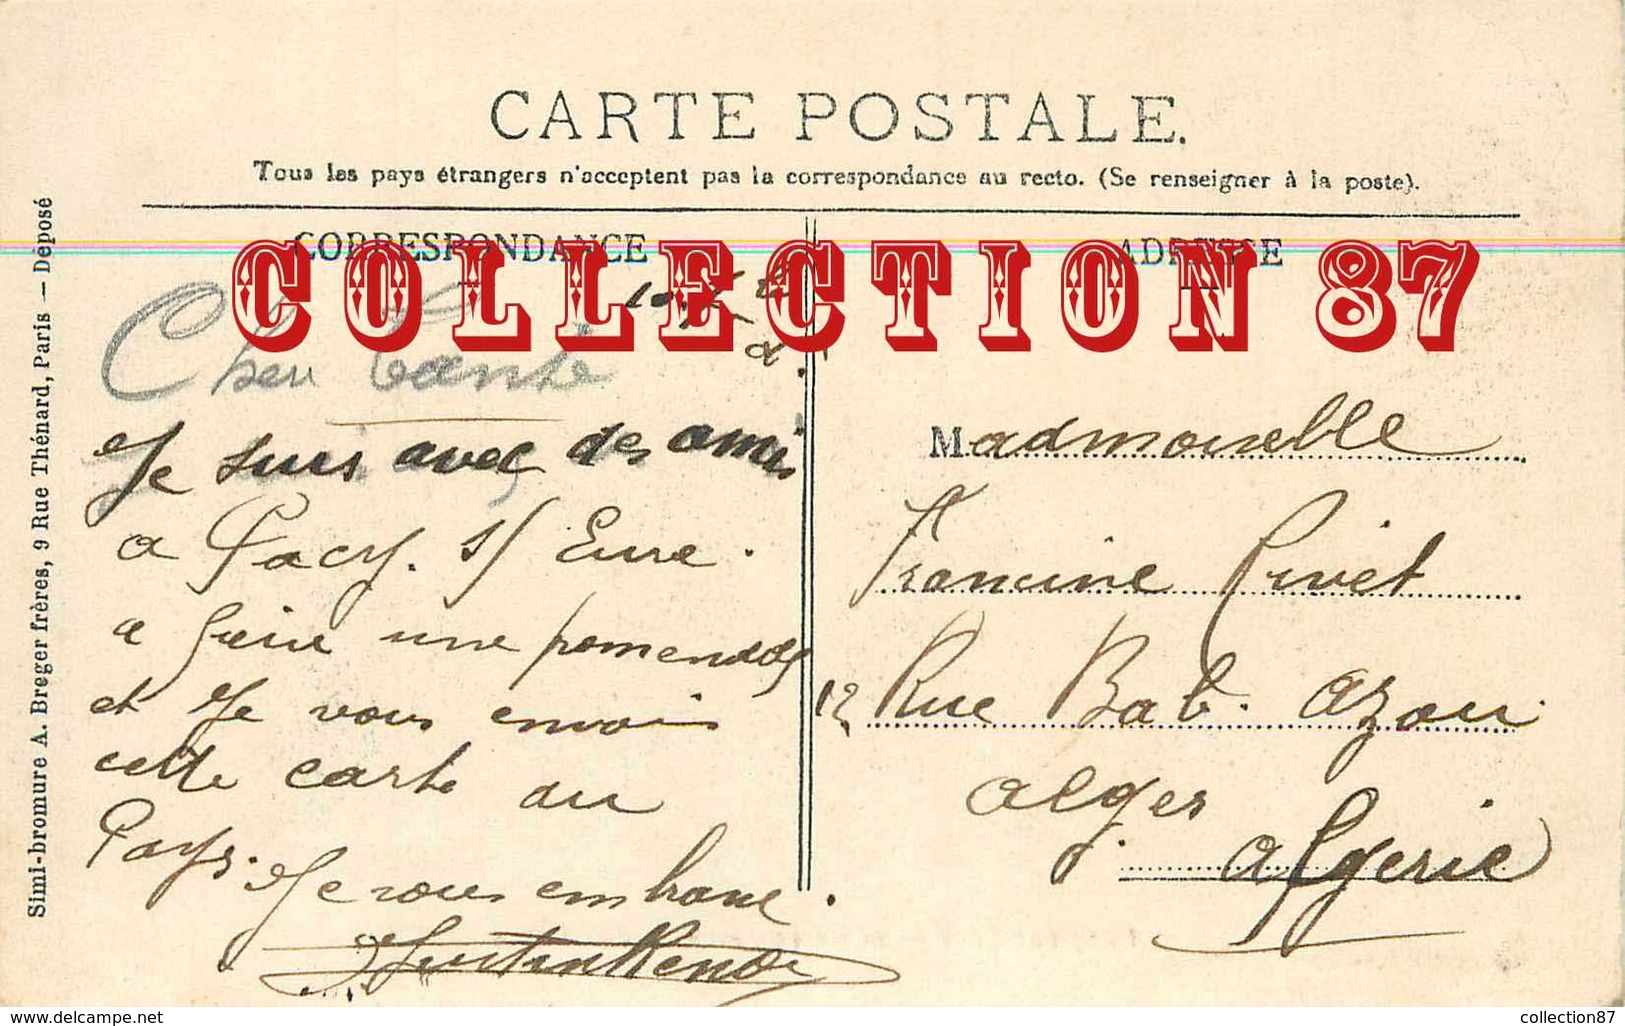 CARTE POSTALE.
Tous les pays étrangers n'acceptent pas la correspondance au recto. (Se renseigner à la poste).
CORRESPONDANCE
ADRESSE
COLLECTION 87
Simi-bromure A. Breger frères, 9 Rue Thénard, Paris — Déposé
Cher tante
Je suis avec des amis
a Pacy. s/ Eure.
a faire une pomenade
et Je vous envois
cette carte du
Pays. Je vous embrasse.
Madmoiselle
Francine Rivet
12 Rue Bab. azou
alger
algerie
www.delcampe.net
collection87